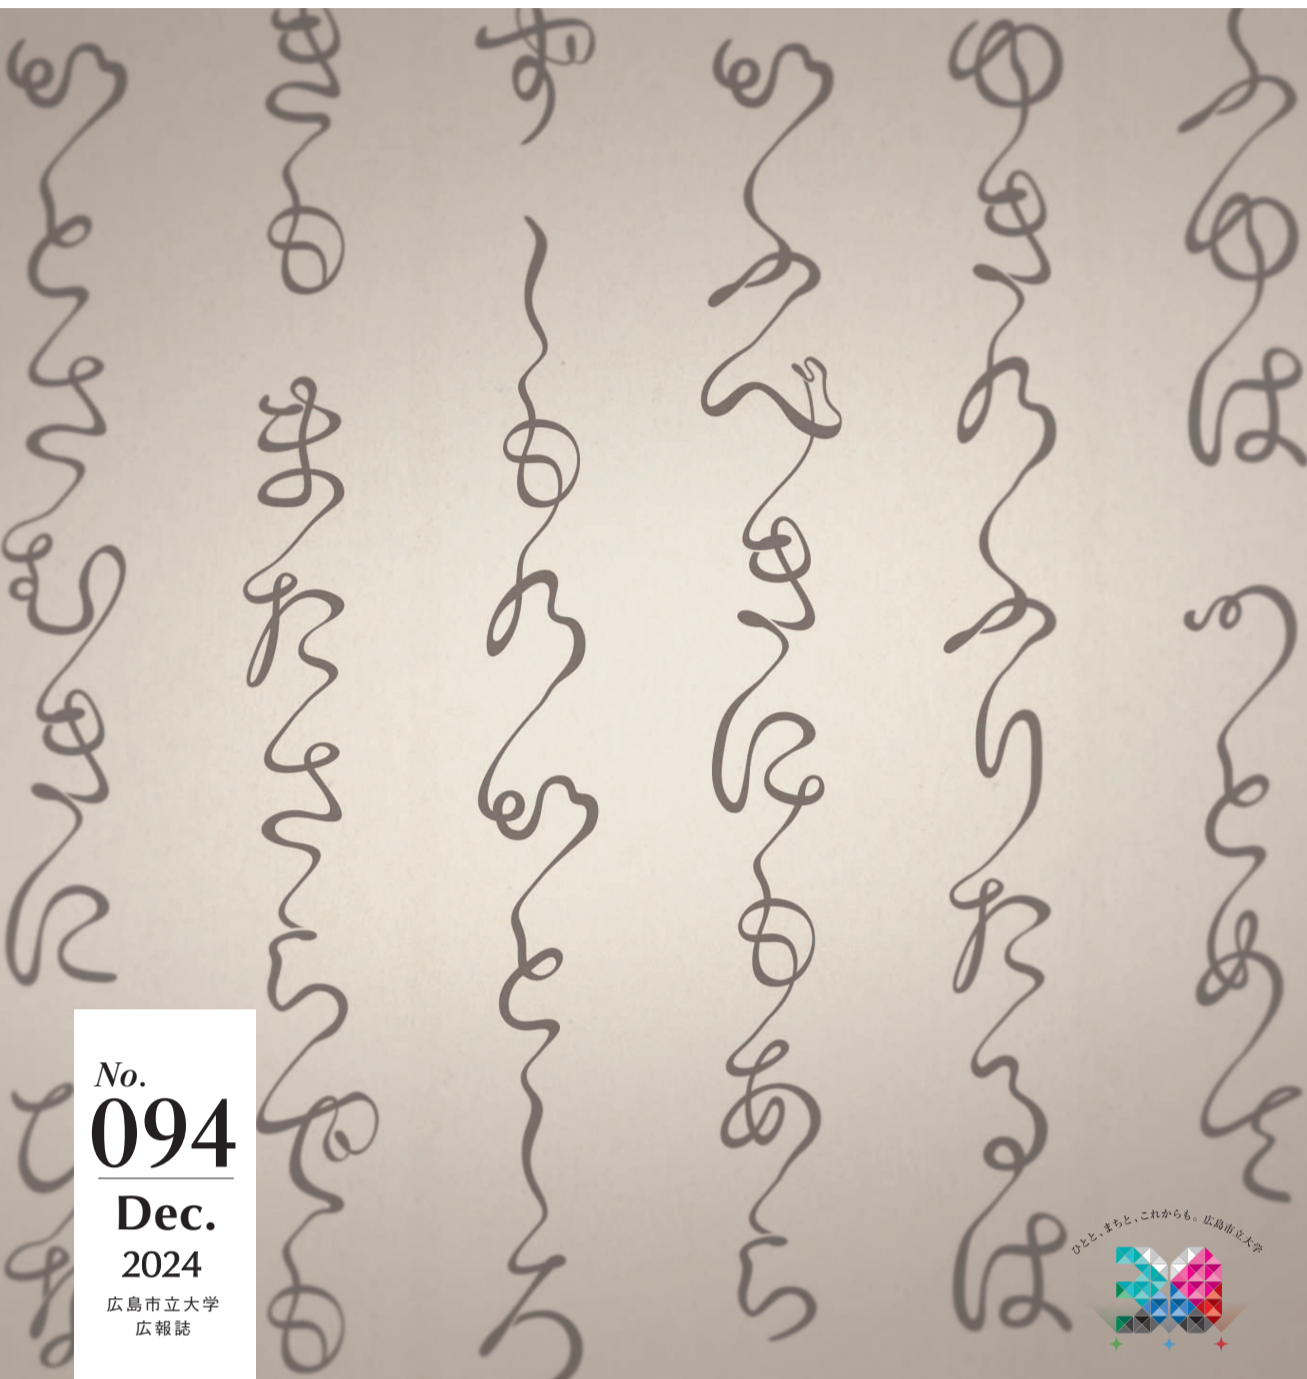 ふゆは つとめて
ゆきのふりたるは
いふべきにもあら
ず しものいとしろ
きも またさらでも
いとさむきに ひな
No.
094
Dec.
2024
広島市立大学
広報誌
ひとと、まちと、これからも。広島市立大学
30